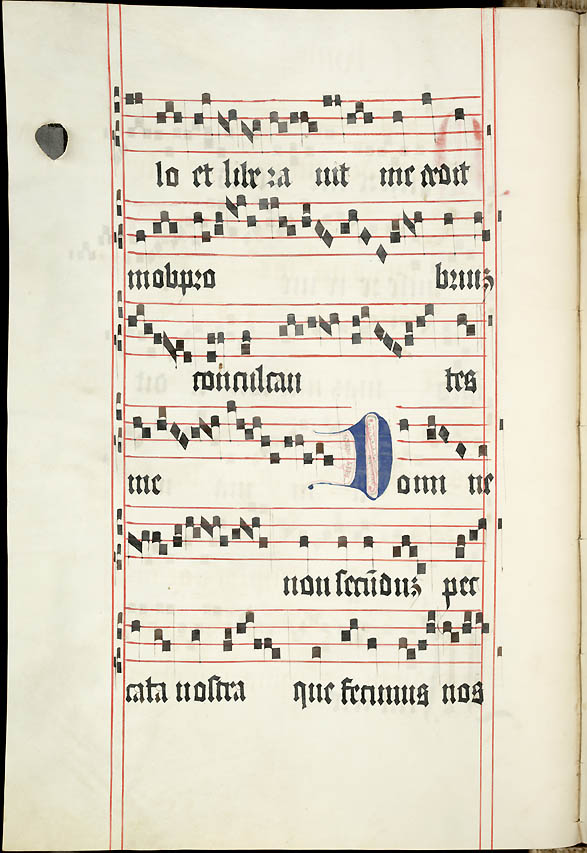 lo et libera uit me dedit
in obpro briuz
conculcan tes
me Domi ne
non secūduz pec
cata nostra que fecimus nos